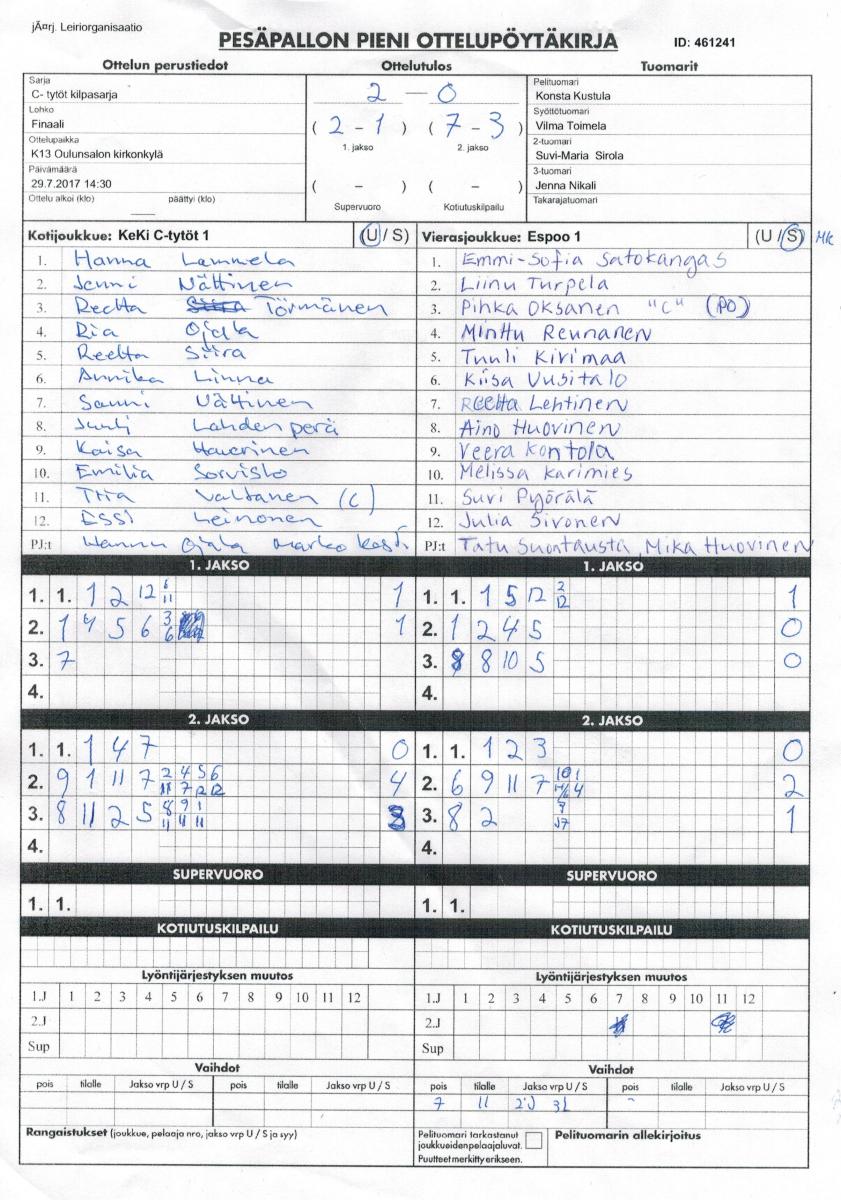 jÃ¤rj. Leiriorganisaatio
PESÄPALLON PIENI OTTELUPÖYTÄKIRJA ID: 461241
Ottelun perustiedot Ottelutulos Tuomarit
Sarja
C- tytöt kilpasarja
Lohko
Finaali
Ottelupaikka
K13 Oulunsalon kirkonkylä
Päivämäärä
29.7.2017 14:30
Ottelu alkoi (klo) päättyi (klo)
2 — 0
( 2 - 1 ) ( 7 - 3 )
1. jakso 2. jakso
( – ) ( – )
Supervuoro Kotiutuskilpailu
Pelituomari
Konsta Kustula
Syöttötuomari
Vilma Toimela
2-tuomari
Suvi-Maria Sirola
3-tuomari
Jenna Nikali
Takarajatuomari
Kotijoukkue: KeKi C-tytöt 1 (U / S)
1. Hanna Lammela
2. Jenni Nättinen
3. Reetta Törmänen
4. Ria Ojala
5. Reetta Siira
6. Annika Linna
7. Sanni Nättinen
8. Juuli Lahdenperä
9. Kaisa Haverinen
10. Emilia Sorvisto
11. Tiia Valtanen (C)
12. Essi Leinonen
PJ:t Hannu Ojala Marko
Vierasjoukkue: Espoo 1 (U / S) MK
1. Emmi-Sofia Satokangas
2. Liinu Turpela
3. Pihka Oksanen "C" (PO)
4. Minttu Reunanen
5. Tuuli Kivimaa
6. Kiisa Uusitalo
7. Reetta Lehtinen
8. Aino Huovinen
9. Veera Kontola
10. Melissa Karimies
11. Suvi Pyörälä
12. Julia Sironen
PJ:t Tatu Suontausta, Mika Huovinen
1. JAKSO 1. JAKSO
1. 1. 1 2 12 6 11 1
2. 1 4 5 6 3 6 1
3. 7
4.
1. 1. 1 5 12 2 12 1
2. 1 2 4 5 0
3. 8 10 5 0
4.
2. JAKSO 2. JAKSO
1. 1. 1 4 7 0
2. 9 1 11 7 2 4 5 6 4
11 7 12 12
3. 8 11 2 5 8 9 1 3
11 11 11
4.
1. 1. 1 2 3 0
2. 6 9 11 7 10 1 2
3. 8 2 1
4.
SUPERVUORO SUPERVUORO
1. 1. 1. 1.
KOTIUTUSKILPAILU KOTIUTUSKILPAILU
Lyöntijärjestyksen muutos Lyöntijärjestyksen muutos
1.J 1 2 3 4 5 6 7 8 9 10 11 12 1.J 1 2 3 4 5 6 7 8 9 10 11 12
2.J 2.J
Sup Sup
Vaihdot Vaihdot
pois tilalle Jakso vrp U / S pois tilalle Jakso vrp U / S pois tilalle Jakso vrp U / S pois tilalle Jakso vrp U / S
7 11 2J 3L
Rangaistukset (joukkue, pelaaja nro, jakso vrp U / S ja syy)
Pelituomari tarkastanut
joukkueiden pelaajaluvat.
Puutteet merkitty erikseen.
Pelituomarin allekirjoitus